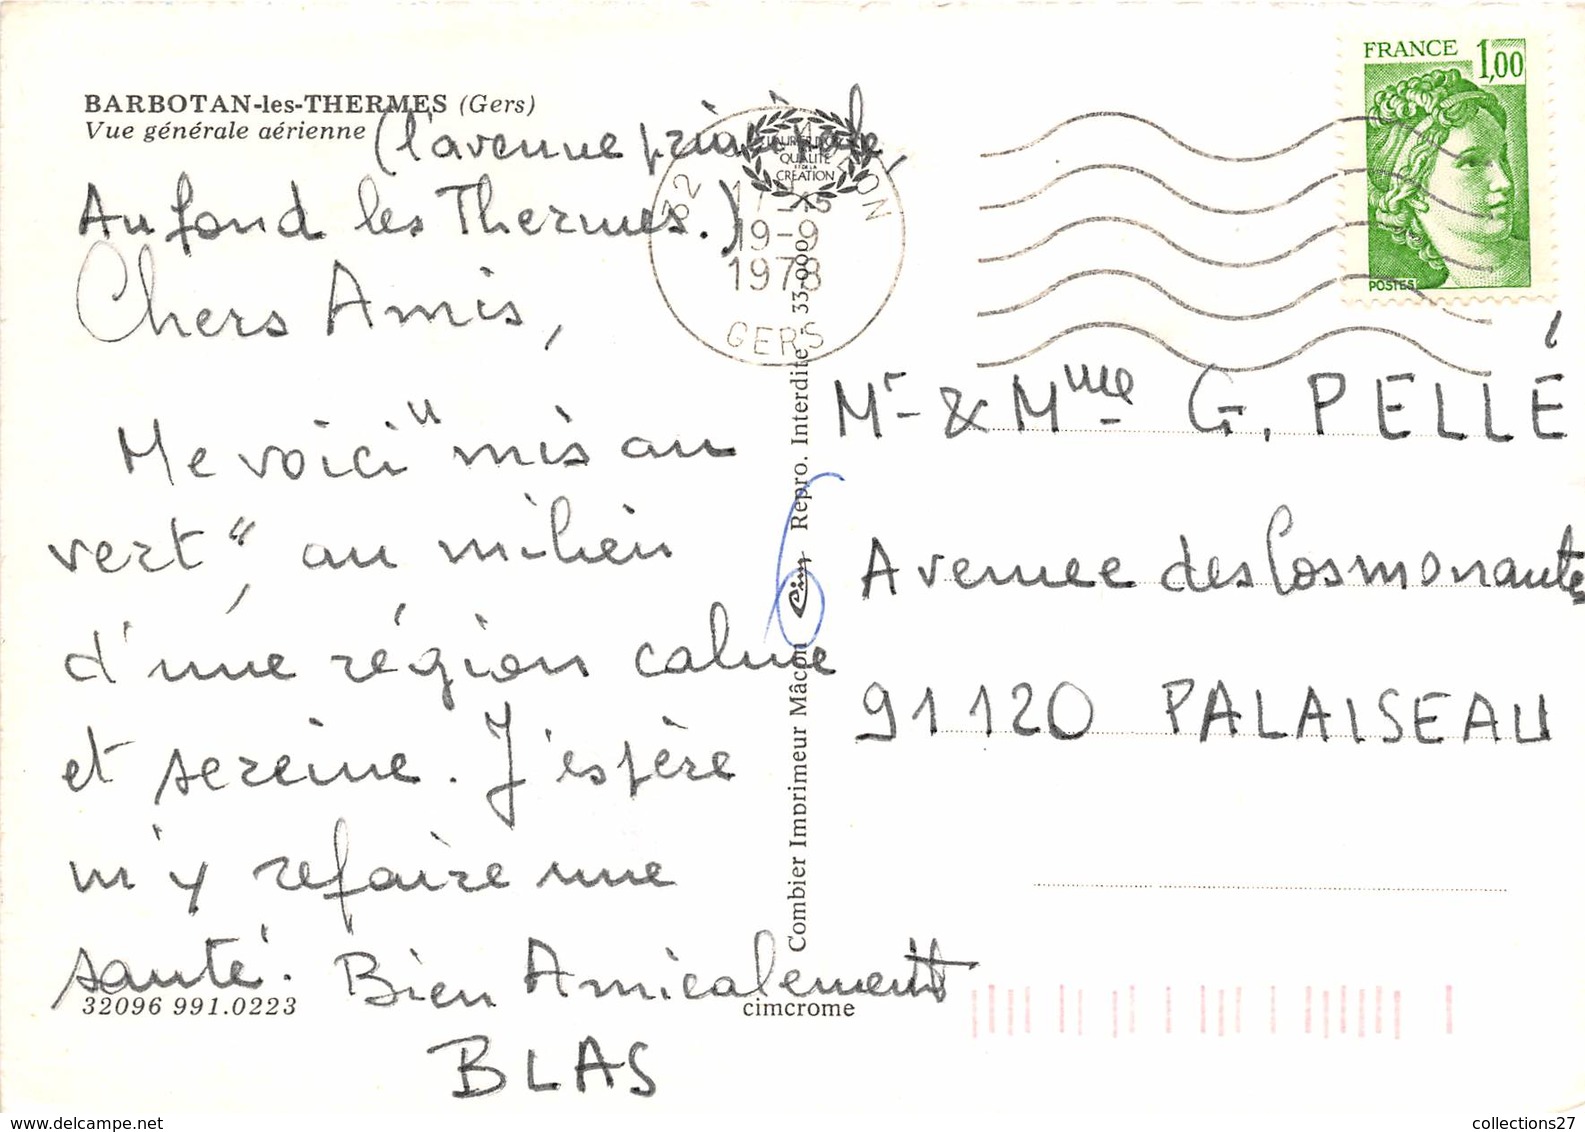 BARBOTAN-les-THERMES (Gers)
Vue générale aérienne
(l'avenue principale,
Au fond les Thermes.)
Chers Amis,
Me voici "mis au
vert", au milieu
d'une région calme
et sereine. J'espère
m'y refaire une
santé. Bien Amicalement
BLAS
32096 991.0223
cimcrome
32
ON
17-15
19-9
1978
GERS
QUALITE
ET DE LA
CREATION
Combier Imprimeur Mâcon Cim Repro. Interdite - 33.000
FRANCE 1,00
POSTES
Mr & Mme G. PELLÉ
Avenue des Cosmonautes
91120 PALAISEAU
www.delcampe.net
collections27